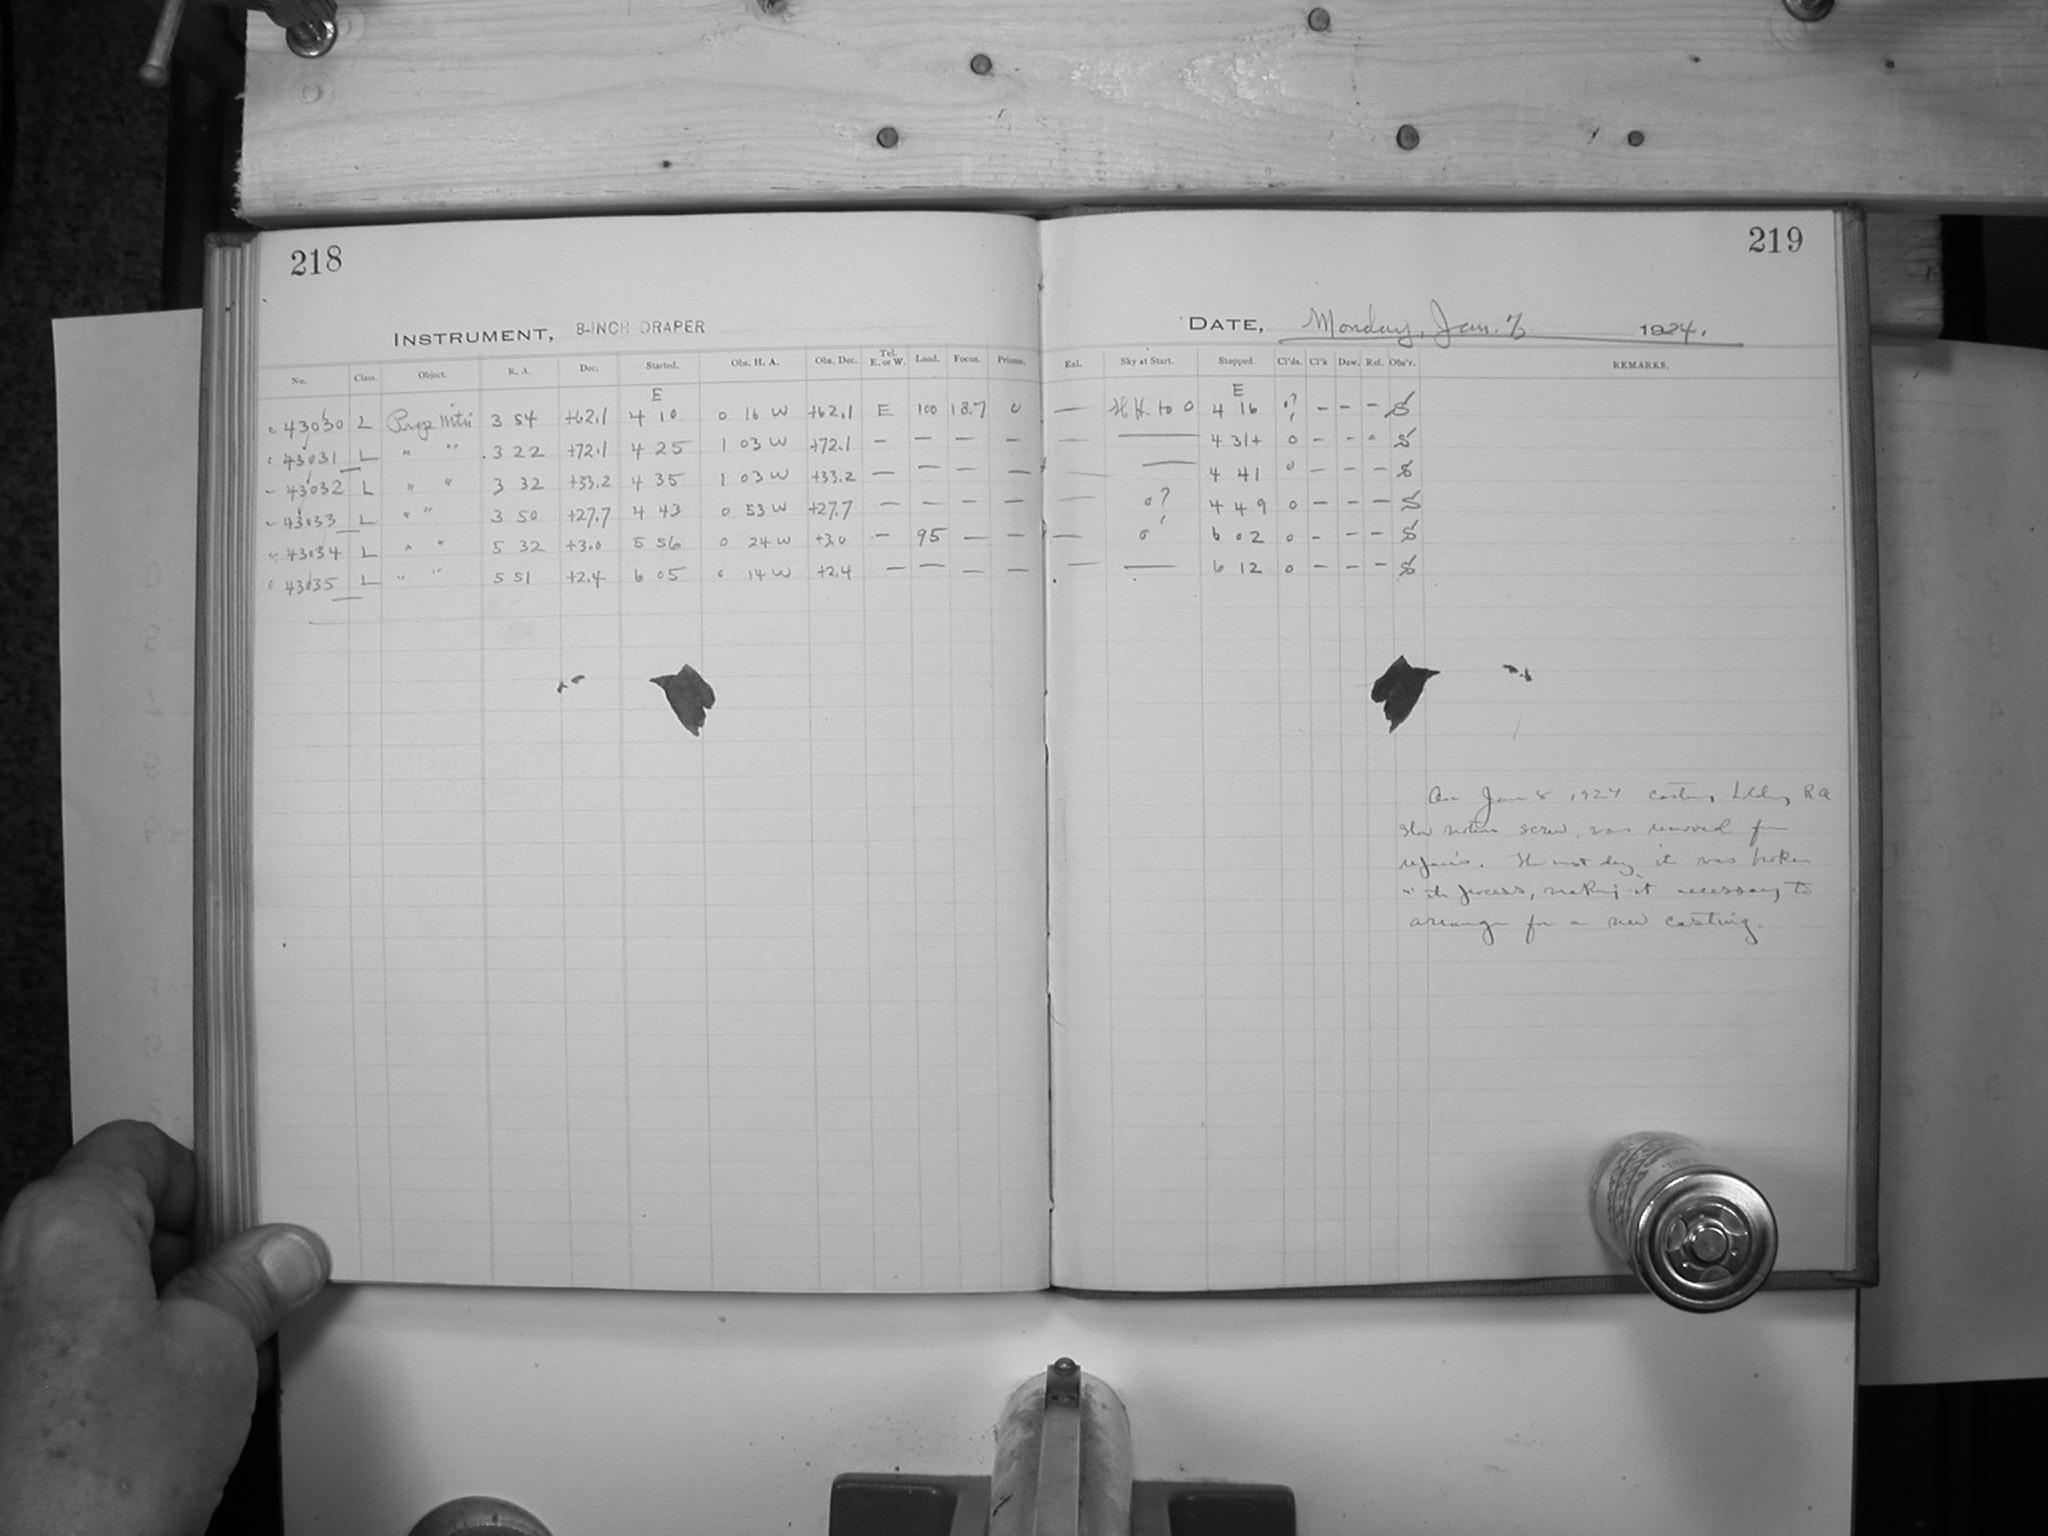 218
219
INSTRUMENT, 8-INCH DRAPER
DATE, Monday, Jan. 7 1924.
No. Class. Object. R. A. Dec. Started. Obs. H. A. Obs. Dec. Tel. E. or W. Load. Focus. Prisms. Enl. Sky at Start. Stopped. Cl'ds. Cl'k Dew. Ref. Obs'r. REMARKS.
E E
43030 L 3 54 +62.1 4 10 0 16 W +62.1 E 100 18.7 0 — H.H. to 0 4 16 0? – – – S
43031 L " " 3 22 +72.1 4 25 1 03 W +72.1 – – – – — — 4 31+ 0 – – – S
43032 L " " 3 32 +33.2 4 35 1 03 W +33.2 – – – – — — 4 41 0 – – – S
43033 L " " 3 50 +27.7 4 43 0 53 W +27.7 – – – – — 0? 4 49 0 – – – S
43034 L " " 5 32 +3.0 5 56 0 24 W +3.0 – 95 – – — 0 6 02 0 – – – S
43035 L " " 5 51 +2.4 6 05 0 14 W +2.4 – – – – — — 6 12 0 – – – S
On Jan 8 1924 casting holding RA
slow motion screw, was removed for
repairs. The next day it was broken
in the process, making it necessary to
arrange for a new casting.